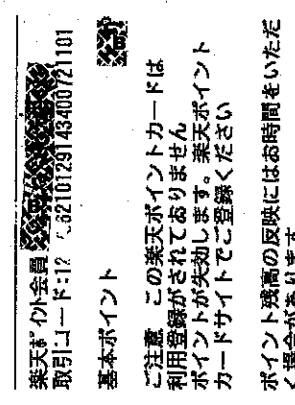 楽天ﾎﾟｲﾝﾄ会員
取引コード:12 62101291 43400721101
基本ポイント
ご注意 この楽天ポイントカードは
利用登録がされておりません
ポイントが失効します。楽天ポイント
カードサイトでご登録ください
ポイント残高の反映にはお時間をいただ
く場合があります